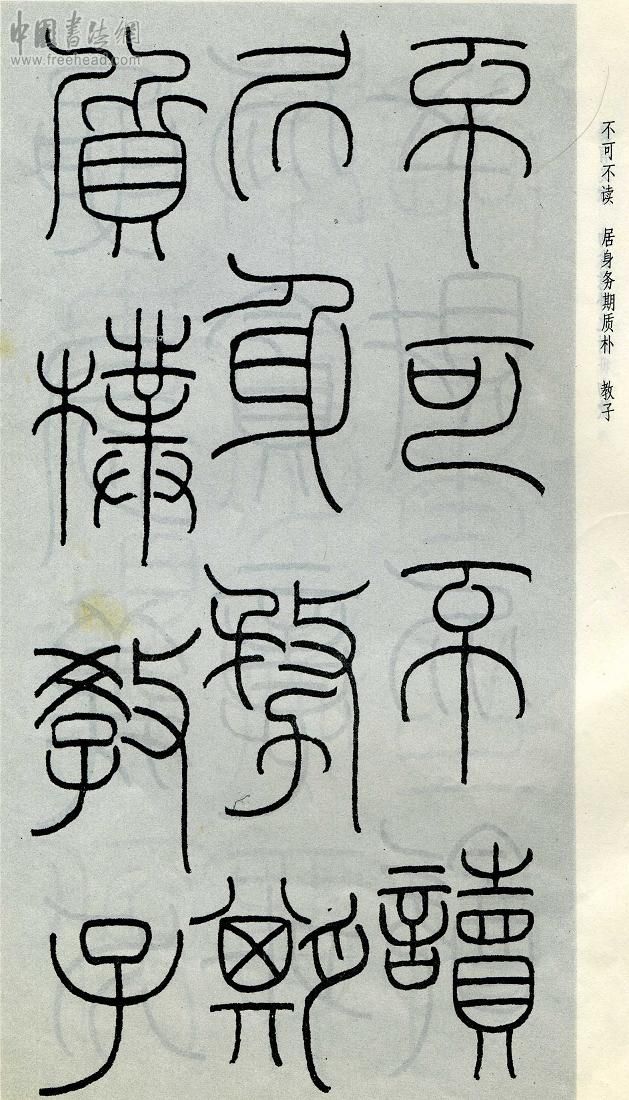 不可不读 居身务期质朴 教子
不可不讀
居身務期
質樸教子
中国书法網
www.freehead.com